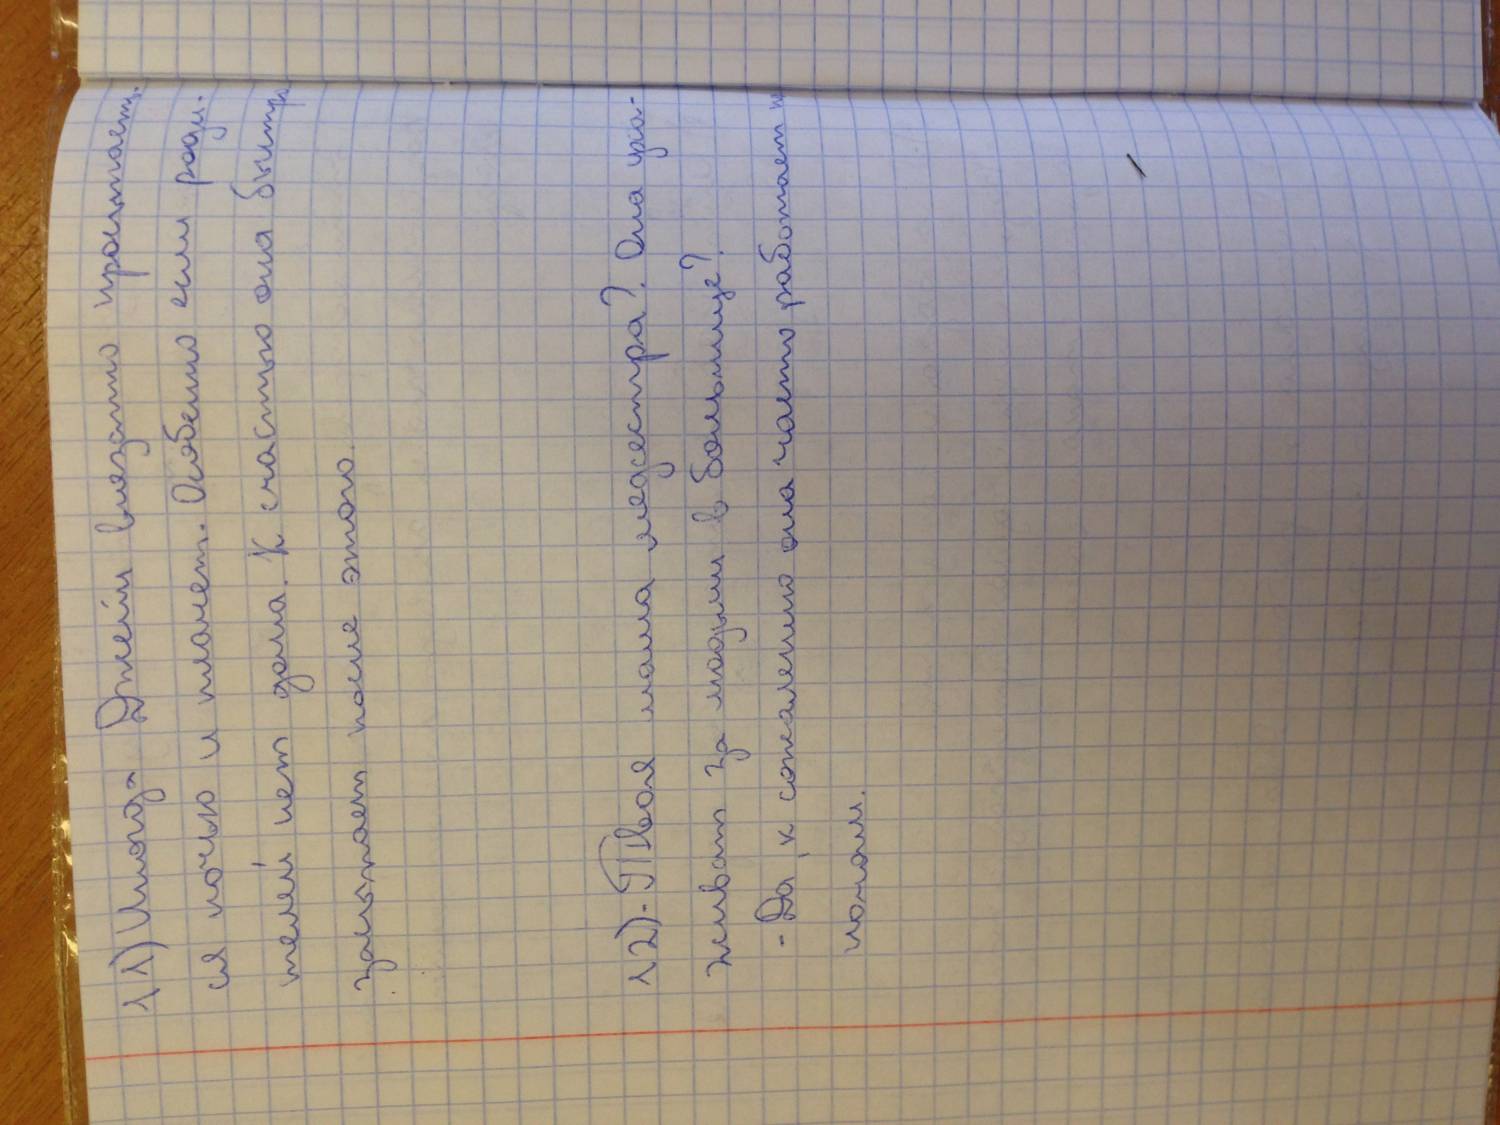 11) Иногда Джейн внезапно просыпает-
ся ночью и плачет. Особенно если роди-
телей нет дома. К счастью она быстро
засыпает после этого.
12) - Твоя мама медсестра? Она уха-
живает за людьми в больнице?
- Да, к сожалению она часто работает
ночам.